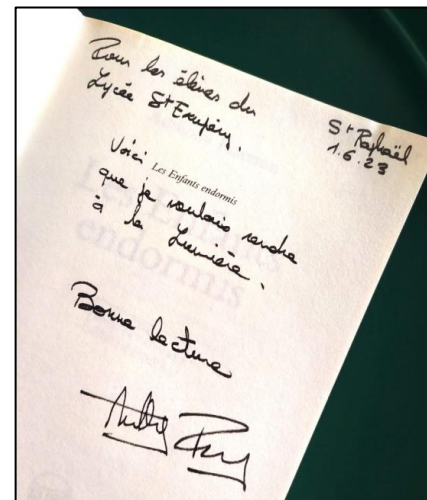 Pour les élèves du
Lycée St Exupéry.
St Raphaël
1.6.23
Voici Les Enfants endormis
que je voulais rendre
à la Lumière.
Bonne lecture